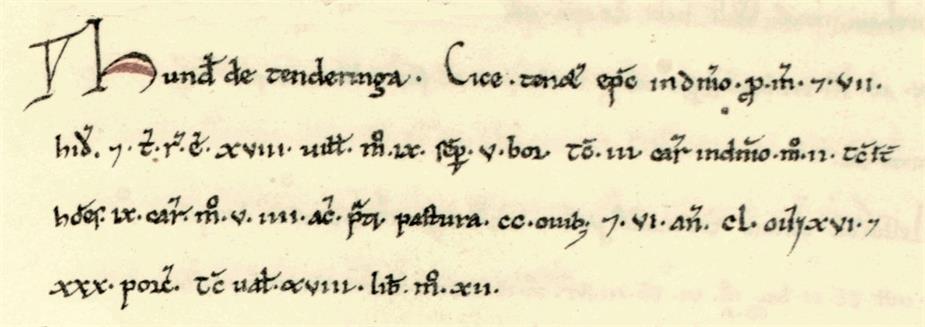 Hund̄ de tenderinga. Cice. teneꞇ̃ ep̄c in dn̄io. ꝓ. m̄. ⁊. vii.
hid̃. ⁊. t̃. r̃. ẽ. xviii. uilł. m̊. ix. sēp. v. bor tc̄. iii car̃ in dn̄io. m̊. ii. tc̄
hōēs. ix. car̃. m̊. v. iiii. ac̃. p̃ti pastura. cc. ouib; ⁊. vi. an̄. cl. oũ xvi. ⁊
xxx. porc̃. tc̄ ual̃. xviii. lib̃. m̊. xii.